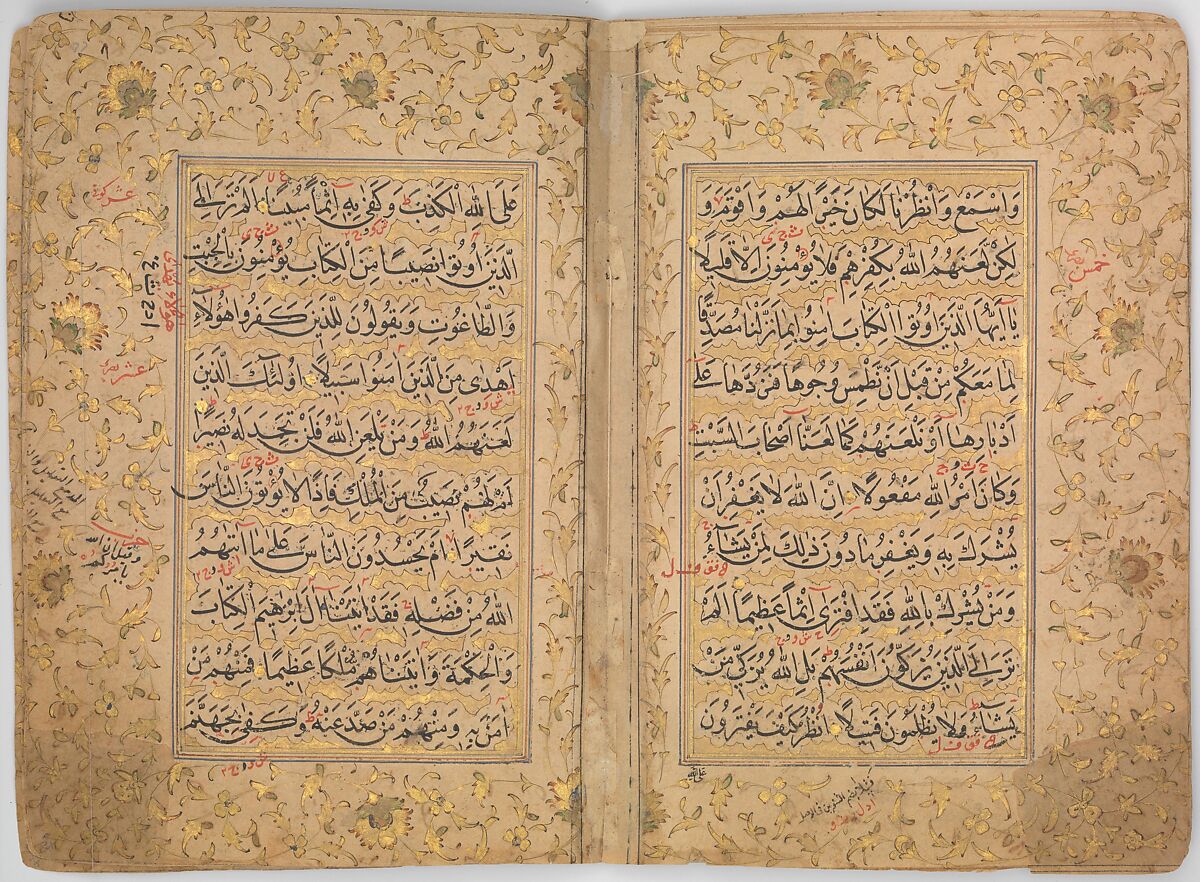 وَاسْمَعْ وَانْظُرْنَا لَكَانَ خَيْرًا لَهُمْ وَاَقْوَمَ وَ
لٰكِنْ لَعَنَهُمُ اللّٰهُ بِكُفْرِهِمْ فَلَا يُؤْمِنُونَ اِلَّا قَلِيلًا
يَا اَيُّهَا الَّذِينَ اُوتُوا الْكِتَابَ اٰمِنُوا بِمَا نَزَّلْنَا مُصَدِّقًا
لِمَا مَعَكُمْ مِنْ قَبْلِ اَنْ نَطْمِسَ وُجُوهًا فَنَرُدَّهَا عَلٰى
اَدْبَارِهَا اَوْ نَلْعَنَهُمْ كَمَا لَعَنَّا اَصْحَابَ السَّبْتِ
وَكَانَ اَمْرُ اللّٰهِ مَفْعُولًا اِنَّ اللّٰهَ لَا يَغْفِرُ اَنْ
يُشْرَكَ بِهِ وَيَغْفِرُ مَا دُونَ ذٰلِكَ لِمَنْ يَشَاءُ
وَمَنْ يُشْرِكْ بِاللّٰهِ فَقَدِ افْتَرٰى اِثْمًا عَظِيمًا اَلَمْ
تَرَ اِلَى الَّذِينَ يُزَكُّونَ اَنْفُسَهُمْ بَلِ اللّٰهُ يُزَكِّي مَنْ
يَشَاءُ وَلَا يُظْلَمُونَ فَتِيلًا اُنْظُرْ كَيْفَ يَفْتَرُونَ
عَلَى اللّٰهِ
خمس
عَلَى اللّٰهِ الْكَذِبَ وَكَفٰى بِهِ اِثْمًا مُبِينًا اَلَمْ تَرَ اِلَى
الَّذِينَ اُوتُوا نَصِيبًا مِنَ الْكِتَابِ يُؤْمِنُونَ بِالْجِبْتِ
وَالطَّاغُوتِ وَيَقُولُونَ لِلَّذِينَ كَفَرُوا هٰؤُلَاءِ
اَهْدٰى مِنَ الَّذِينَ اٰمَنُوا سَبِيلًا اُولٰئِكَ الَّذِينَ
لَعَنَهُمُ اللّٰهُ وَمَنْ يَلْعَنِ اللّٰهُ فَلَنْ تَجِدَ لَهُ نَصِيرًا
اَمْ لَهُمْ نَصِيبٌ مِنَ الْمُلْكِ فَاِذًا لَا يُؤْتُونَ النَّاسَ
نَقِيرًا اَمْ يَحْسُدُونَ النَّاسَ عَلٰى مَا اٰتٰيهُمُ
اللّٰهُ مِنْ فَضْلِهِ فَقَدْ اٰتَيْنَا اٰلَ اِبْرٰهِيمَ الْكِتَابَ
وَالْحِكْمَةَ وَاٰتَيْنَاهُمْ مُلْكًا عَظِيمًا فَمِنْهُمْ مَنْ
اٰمَنَ بِهِ وَمِنْهُمْ مَنْ صَدَّ عَنْهُ وَكَفٰى بِجَهَنَّمَ
عشر
عشر